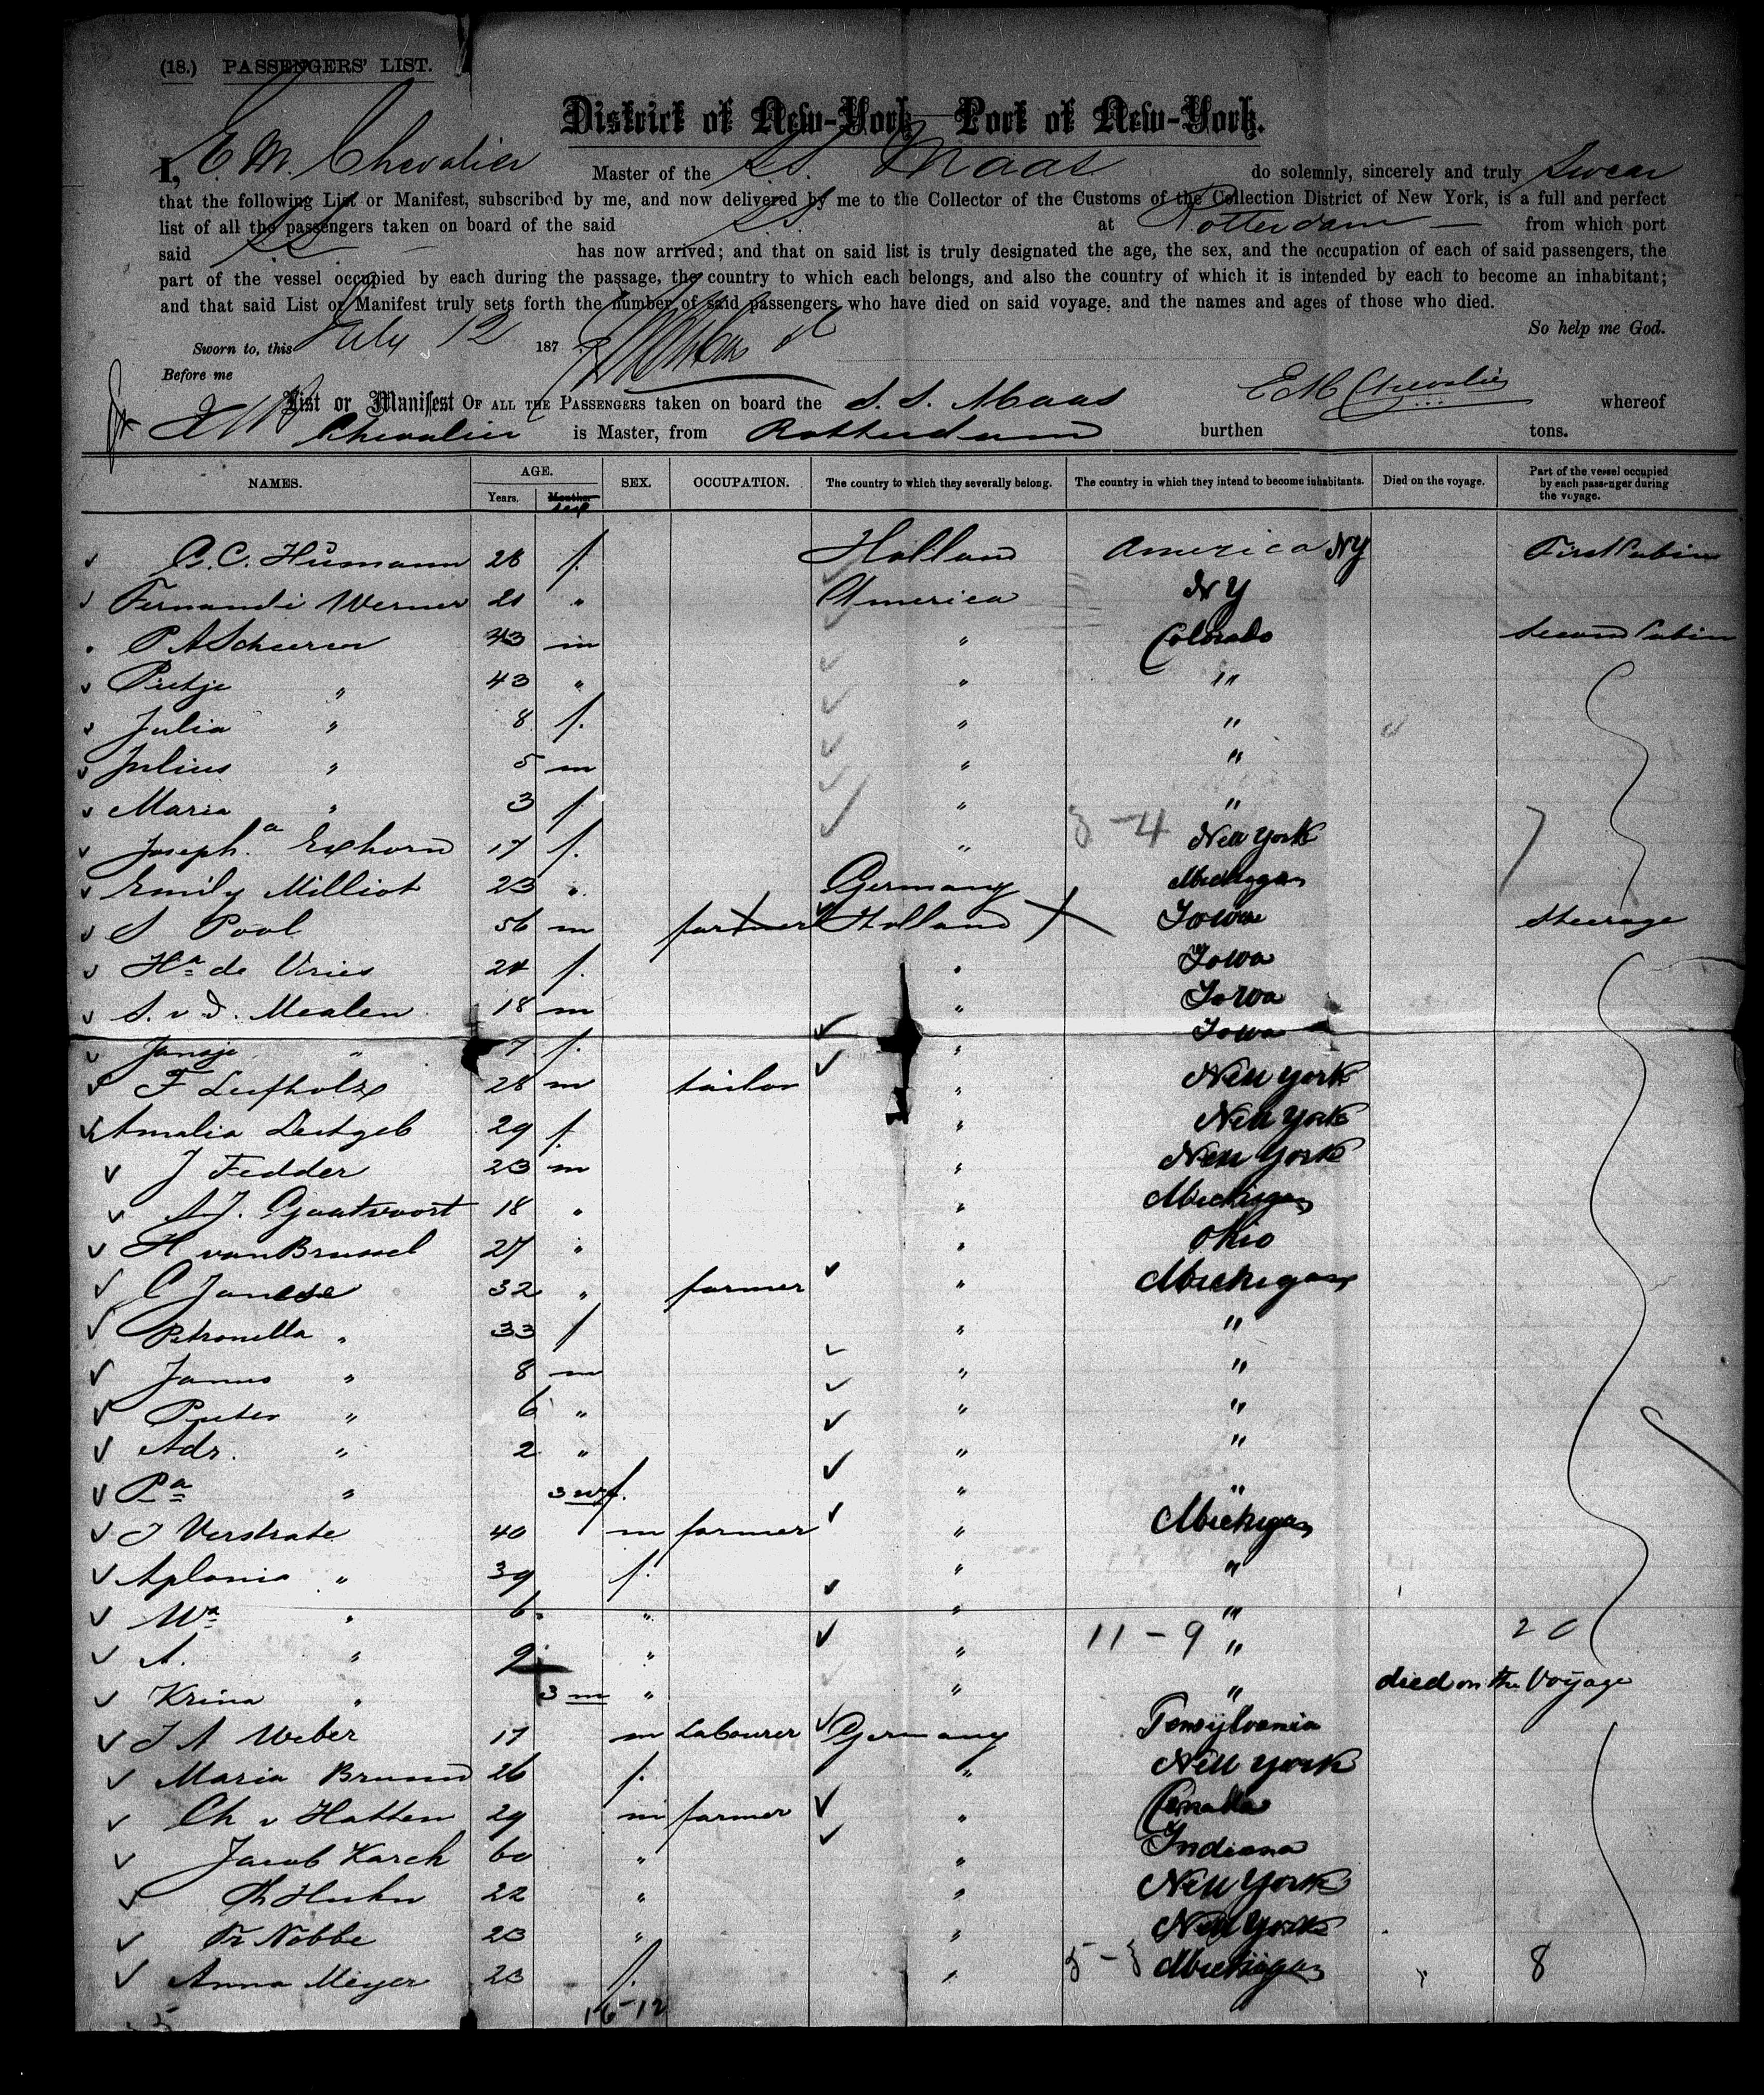 (18.) PASSENGERS' LIST.
District of New-York Port of New-York.
I, E. M. Chevalier Master of the S.S. Maas do solemnly, sincerely and truly Swear
that the following List or Manifest, subscribed by me, and now delivered by me to the Collector of the Customs of the Collection District of New York, is a full and perfect
list of all the passengers taken on board of the said S.S. at Rotterdam — from which port
said S.S. has now arrived; and that on said list is truly designated the age, the sex, and the occupation of each of said passengers, the
part of the vessel occupied by each during the passage, the country to which each belongs, and also the country of which it is intended by each to become an inhabitant;
and that said List or Manifest truly sets forth the number of said passengers who have died on said voyage, and the names and ages of those who died.
So help me God.
Sworn to, this July 12 187
Before me
E M Chevalier
List or Manifest OF ALL THE PASSENGERS taken on board the S. S. Maas whereof
Chevalier is Master, from Rotterdam burthen tons.
NAMES. AGE. Years. Months. sex SEX. OCCUPATION. The country to which they severally belong. The country in which they intend to become inhabitants. Died on the voyage. Part of the vessel occupied by each passenger during the voyage.
C. Humann 28 f. Holland America NY First Cabin
Werner 21 " America NY
P A Scheerer 43 m " Colorado Second Cabin
Pietje " 43 " " "
Julia " 8 f. " "
Julius " 5 m " "
Maria " 3 f " " 3-4
Joseph.a Exhorn 17 f. " New York 7
Emily Milliot 23 " Germany Michigan
S Pool 56 m farmer Holland Iowa Steerage
Ha de Vries 24 f. " Iowa
S. v d. Mealen 18 m " Iowa
Jansje " 7 f. " Iowa
F Leifholz 28 m tailor " New York
Amalia Leitgeb 29 f. " New York
J Fedder 23 m " New York
A J. Gautvoort 18 " " Michigan
H van Brussel 27 " " Ohio
C Janese 32 " farmer " Michigan
Petronella " 33 f " "
Janus " 8 m " "
Pieter " 6 " " "
Adr. " 2 " " "
Pa " 3 w f. " "
J Verstrate 40 m farmer " Michigan
Aplonia " 39 f. " "
Wa " 6 " " "
A. " 2 " " 11-9 " 20
Krina " 3 m " " " died on the Voyage
J A Weber 17 m Labourer Germany Pensylvania
Maria Brunn 26 f. " New York
Ch v Hatten 29 m farmer " Canada
Jacob Karch 60 " " Indiana
Ch Huhn 22 " " New York
Fr Nobbe 23 " " New York
Anna Meyer 23 f. " 5-3 Michigan 8
16-12